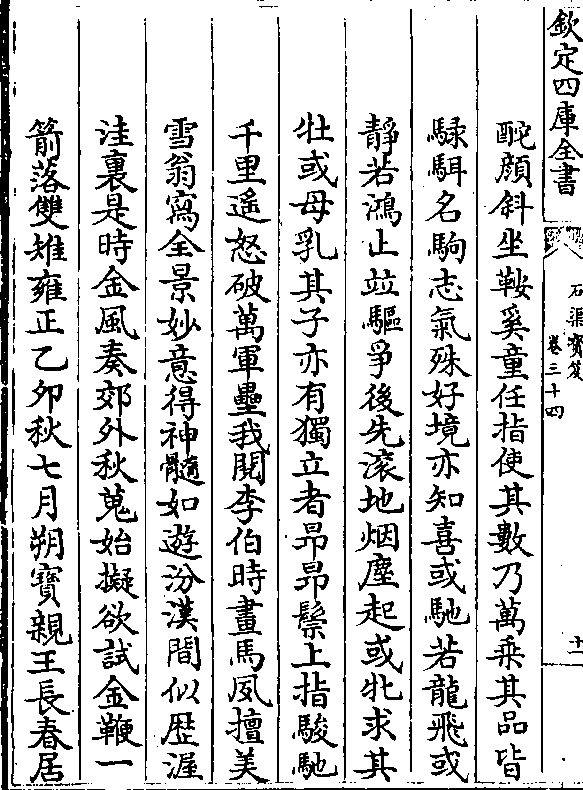 欽定四庫全書
石渠寳笈
卷三十四
十
酡顔斜坐鞍奚童任指使其數乃萬乘其品皆
騄駬名駒志氣殊好境亦知喜或馳若龍飛或
靜若鴻止竝驅爭後先滚地烟塵起或牝求其
牡或母乳其子亦有獨立者昂昂鬃上指駿馳
千里遥怒破萬軍壘我閱李伯時畫馬夙擅美
雪翁寫全景妙意得神髓如遊汾漢間似歴渥
洼裏是時金風奏郊外秋蒐始擬欲試金鞭一
箭落雙雉雍正乙卯秋七月朔寶親王長春居